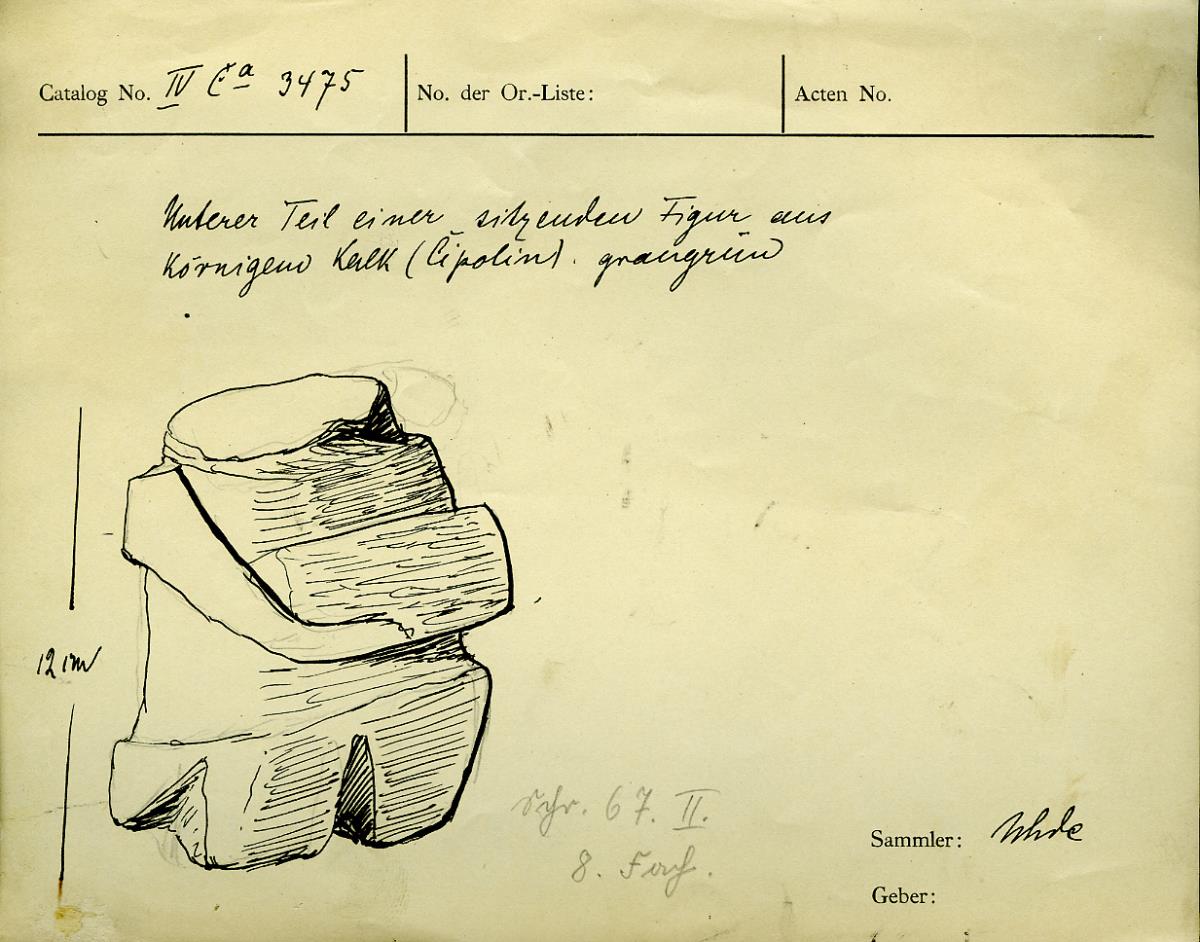 Catalog No. IV Ca 3475 No. der Or.-Liste: Acten No.
Unterer Teil einer sitzenden Figur aus
körnigem Kalk (Cipolin). graugrün
12 cm
Schr. 67. II.
8. Fach.
Sammler: Uhde
Geber: